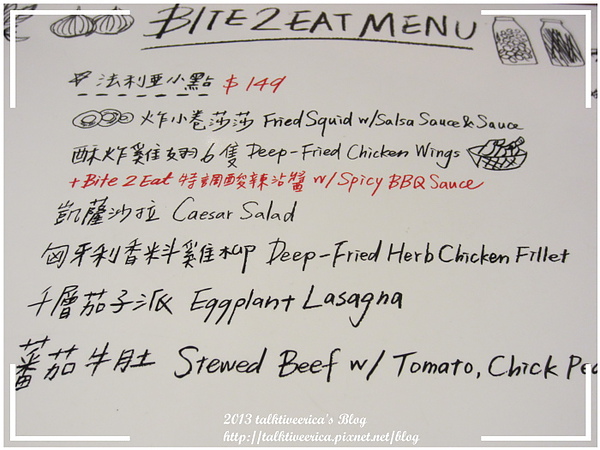 BITE 2 EAT MENU
法利亞小點 $149
炸小卷莎莎 Fried Squid w/Salsa Sauce & Sauce
酥炸雞翅6隻 Deep-Fried Chicken Wings
+Bite 2 Eat 特調酸辣沾醬 w/Spicy BBQ Sauce
凱薩沙拉 Caesar Salad
匈牙利香料雞柳 Deep-Fried Herb Chicken Fillet
千層茄子派 Eggplant Lasagna
蕃茄牛肚 Stewed Beef w/ Tomato, Chick Pea
2013 talktiveerica's Blog
http://talktiveerica.pixnet.net/blog